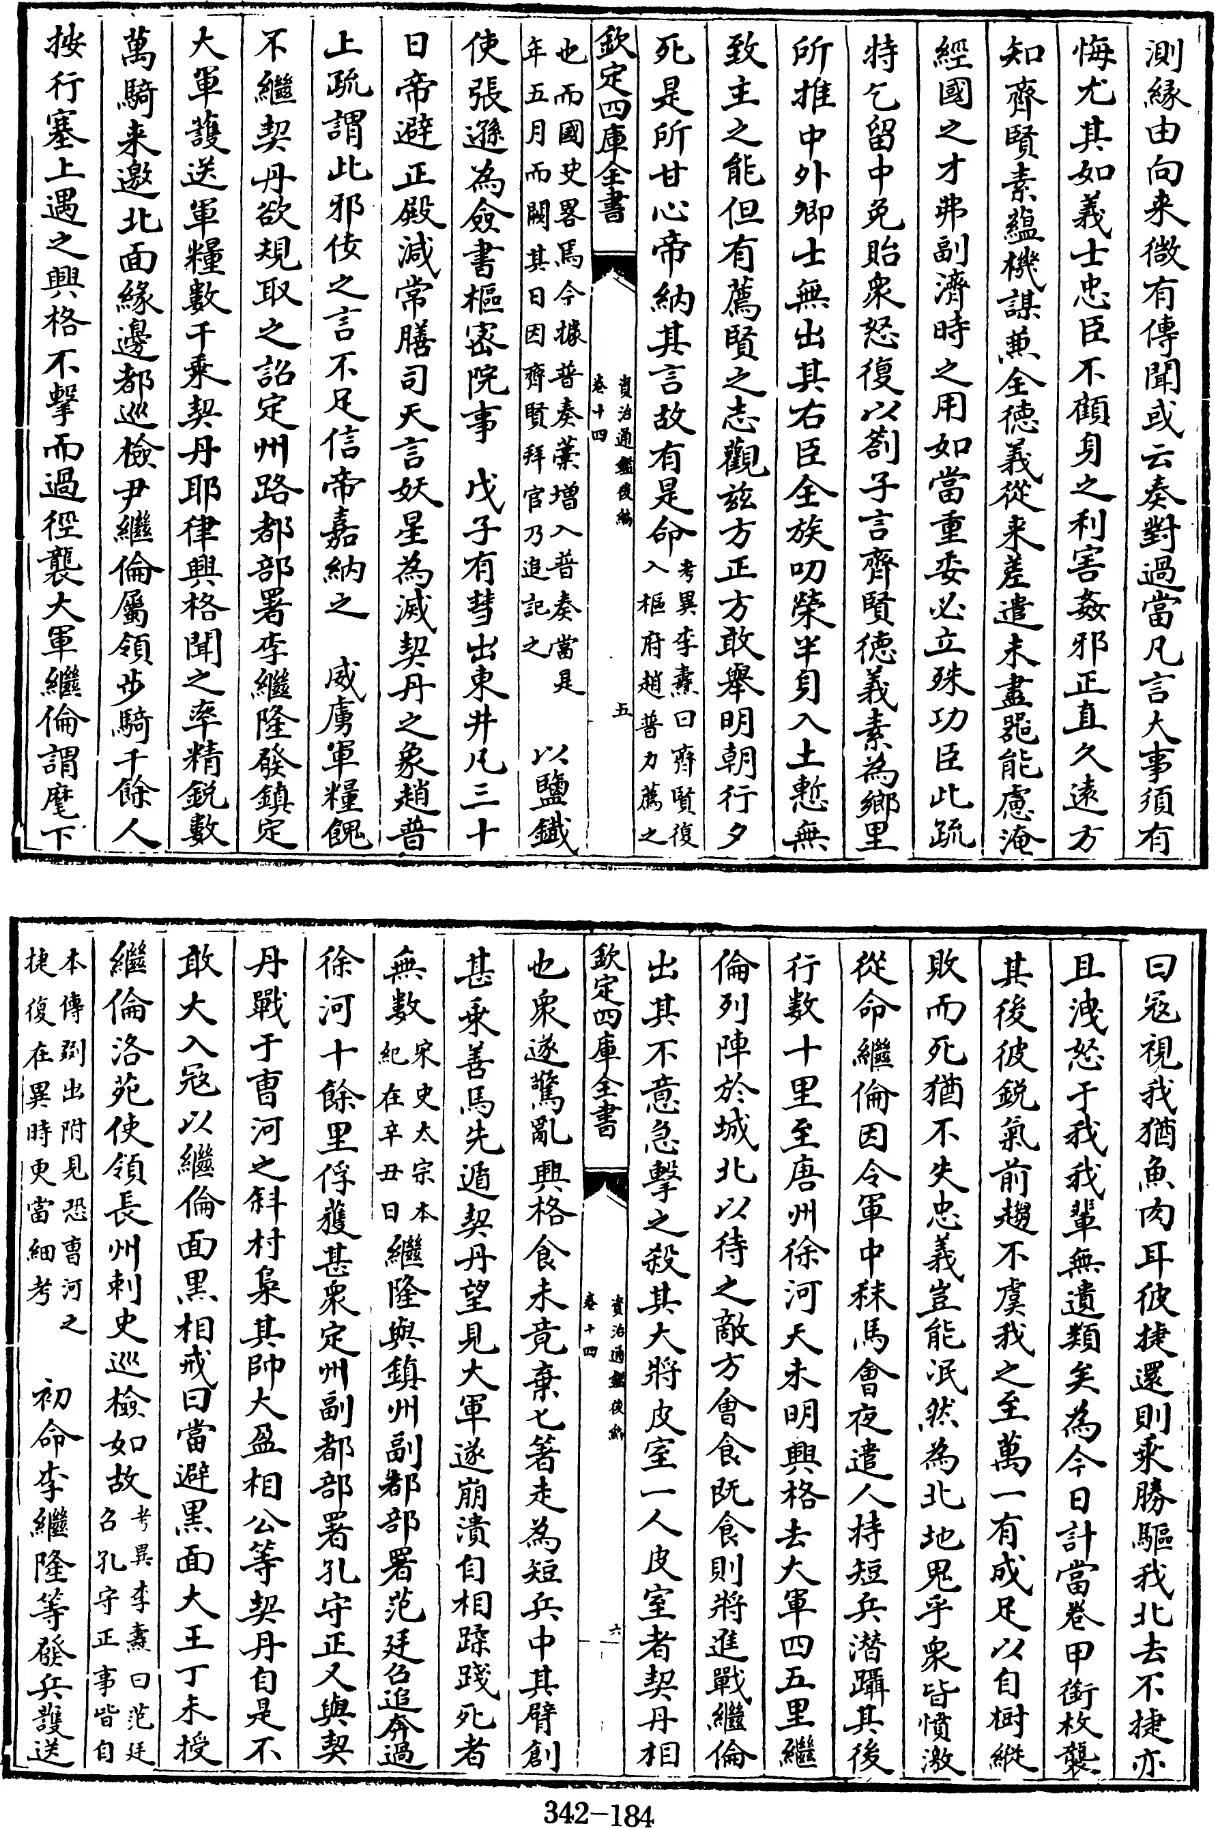 測緣由向来微有傳聞或云奏對過當凡言大事須有
悔尤其如義士忠臣不顧身之利害姦邪正直久遠方
知齊賢素蘊機謀兼全德義從来差遣未盡器能慮淹
經國之才弗副濟時之用如當重委必立殊功臣此疏
特乞留中免貽衆怒復以劄子言齊賢德義素為鄉里
所推中外卿士無出其右臣全族叨榮半身入土慙無
致主之能但有薦賢之志觀兹方正方敢舉明朝行夕
死是所甘心帝納其言故有是命考異李燾曰齊賢復
入樞府趙普力薦之
欽定四庫全書
資治通鑑後編
卷十四
五
也而國史畧焉今據普奏藁增入普奏當是
年五月而闕其日因齊賢拜官乃追記之
以鹽鐵
使張遜為僉書樞密院事　戊子有彗出東井凡三十
日帝避正殿減常膳司天言妖星為滅契丹之象趙普
上疏謂此邪佞之言不足信帝嘉納之　威虜軍糧餽
不繼契丹欲規取之詔定州路都部署李繼隆發鎮定
大軍護送軍糧數千乘契丹耶律興格聞之率精銳數
萬騎来邀北面緣邊都巡檢尹繼倫屬領步騎千餘人
按行塞上遇之興格不擊而過徑襲大軍繼倫謂麾下
曰寇視我猶魚肉耳彼捷還則乘勝驅我北去不捷亦
且洩怒于我我輩無遺類矣為今日計當卷甲銜枚襲
其後彼銳氣前趨不虞我之至萬一有成足以自樹縱
敗而死猶不失忠義豈能泯然為北地鬼乎衆皆憤激
從命繼倫因令軍中秣馬會夜遣人持短兵潛躡其後
行數十里至唐州徐河天未明興格去大軍四五里繼
倫列陣於城北以待之敵方會食既食則將進戰繼倫
出其不意急擊之殺其大將皮室一人皮室者契丹相
欽定四庫全書
資治通鑑後編
卷十四
六
也衆遂驚亂興格食未竟棄匕箸走為短兵中其臂創
甚乘善馬先遁契丹望見大軍遂崩潰自相蹂踐死者
無數宋史太宗本
紀在辛丑日
繼隆與鎮州副都部署范廷召追奔過
徐河十餘里俘獲甚衆定州副都部署孔守正又與契
丹戰于曹河之斜村梟其帥大盈相公等契丹自是不
敢大入寇以繼倫面黑相戒曰當避黑面大王丁未授
繼倫洛苑使領長州刺史巡檢如故考異李燾曰范廷
召孔守正事皆自
本傳劉出附見恐曹河之
捷復在異時更當細考
初命李繼隆等發兵護送
342-184